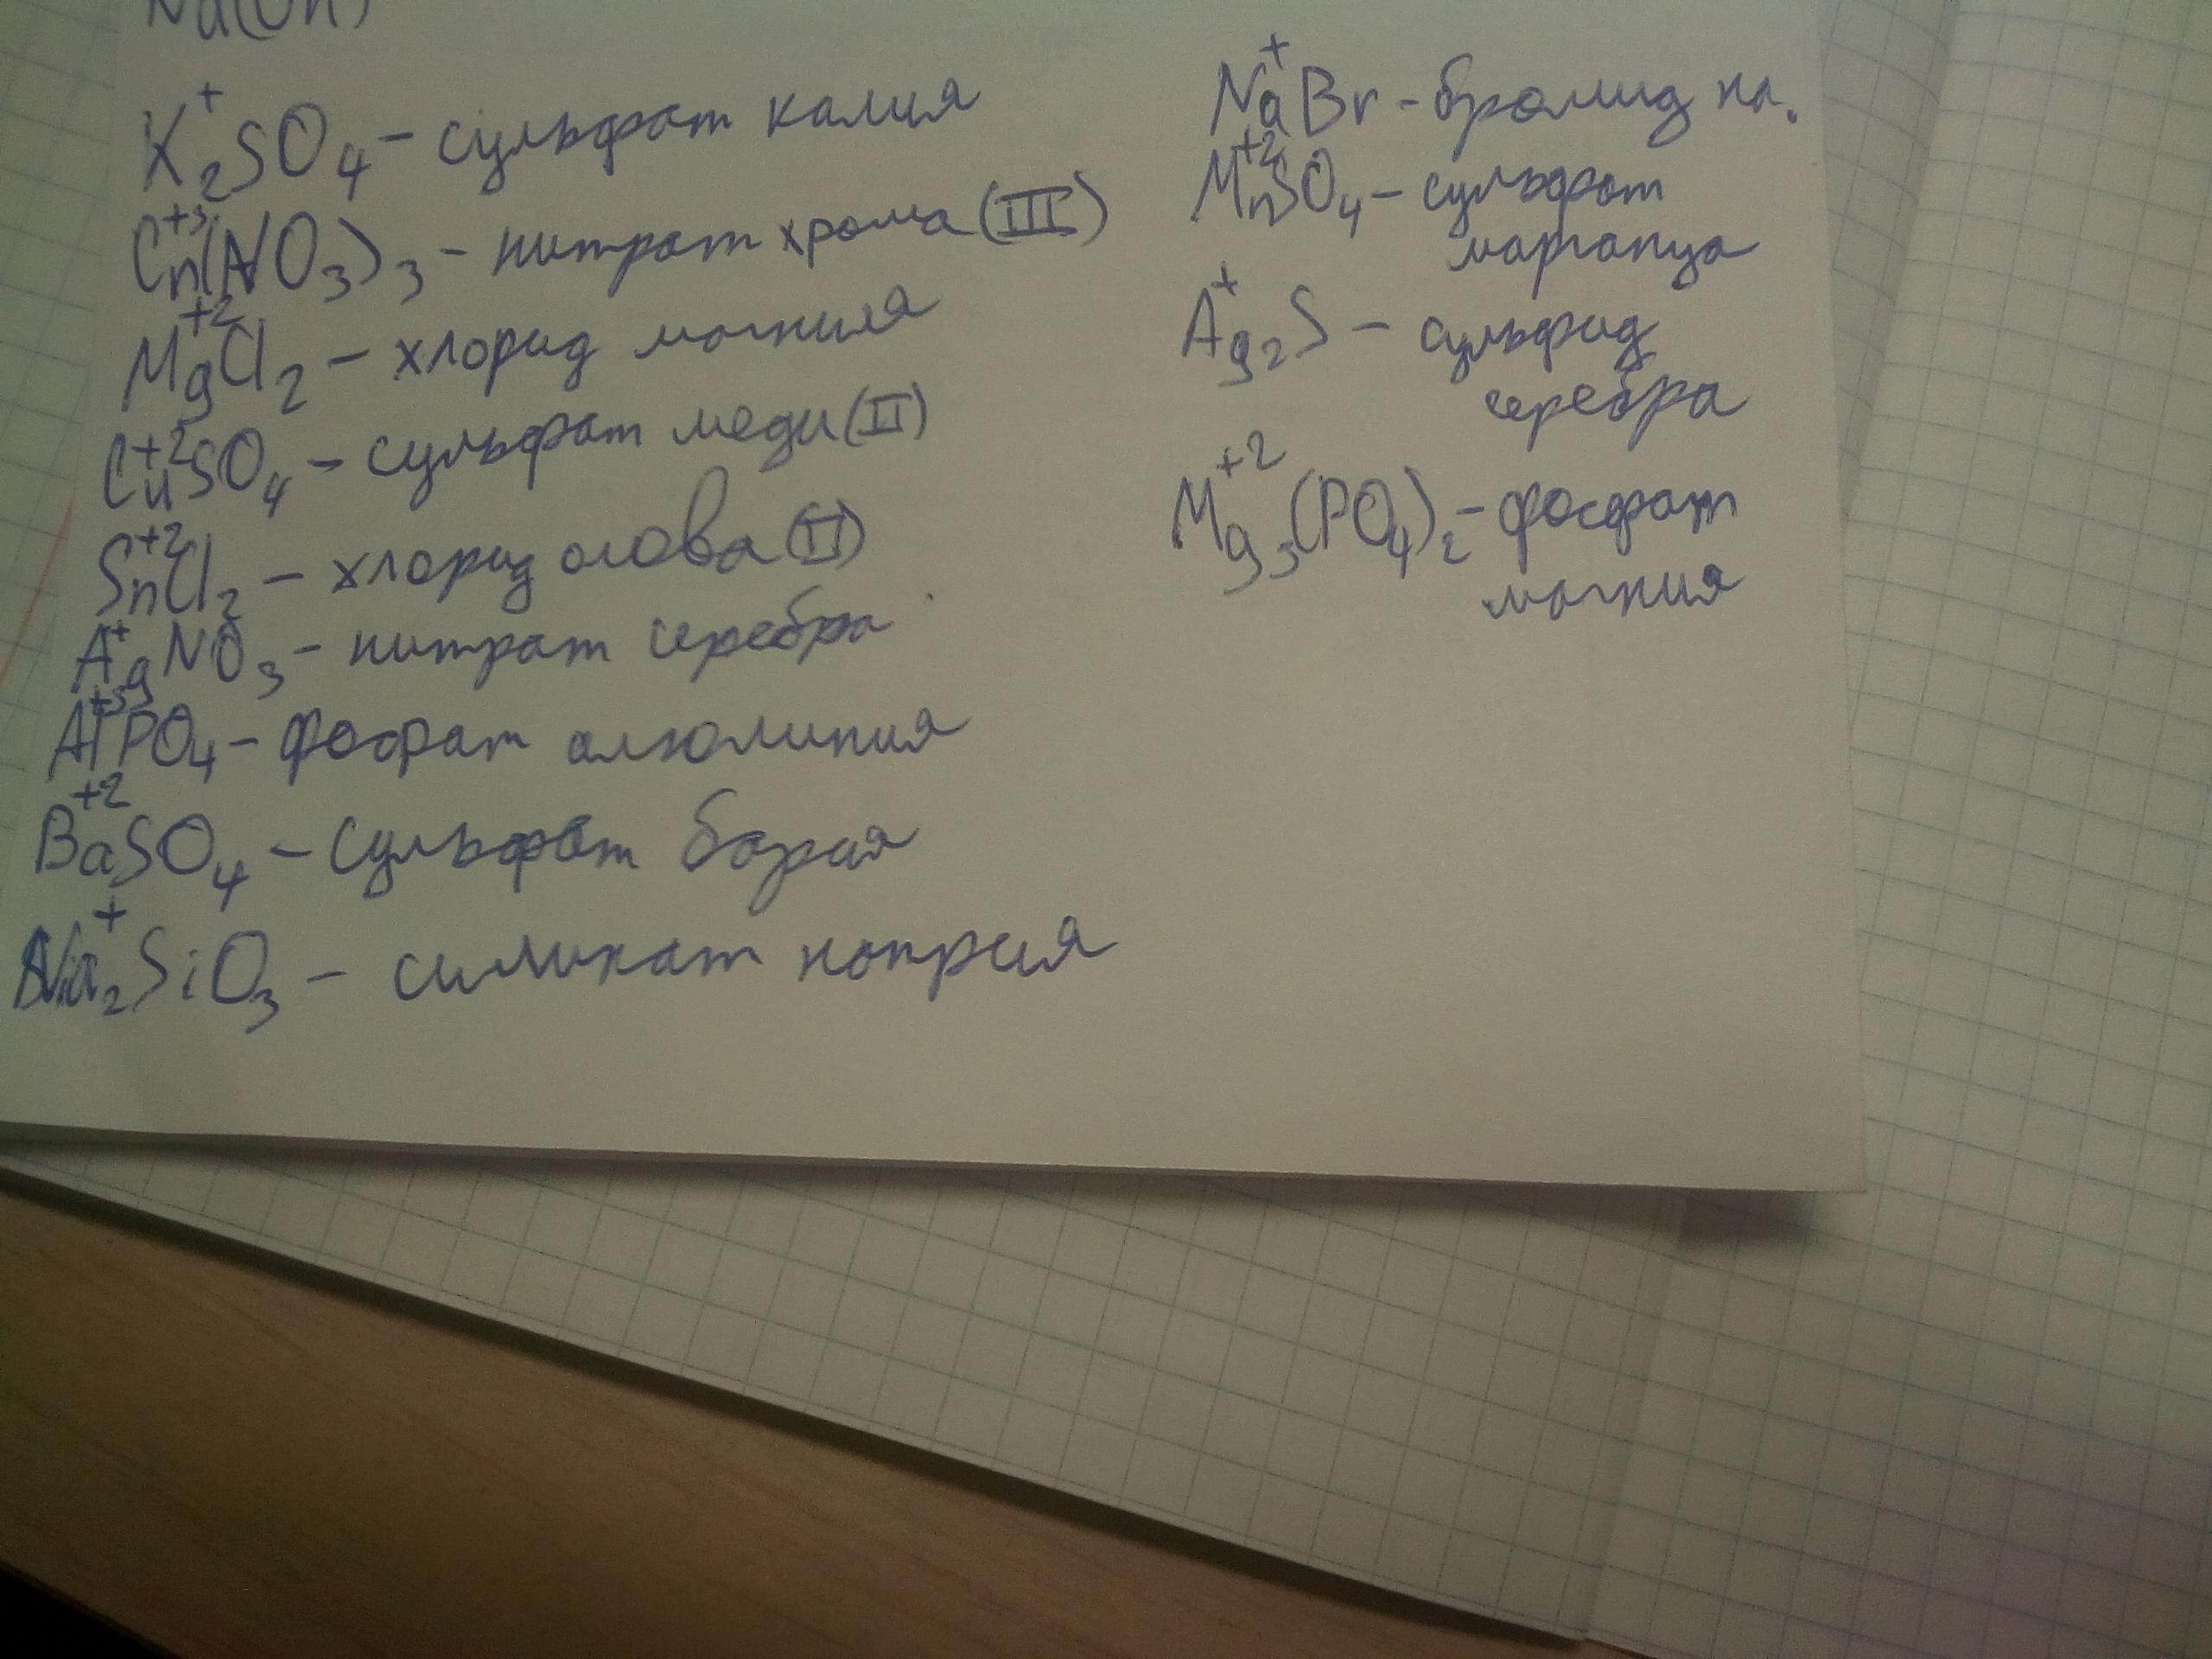 Na(OH)
K⁺₂SO₄ – сульфат калия
Cn⁺³(NO₃)₃ – нитрат хрома (III)
Mg⁺²Cl₂ – хлорид магния
Cu⁺²SO₄ – сульфат меди (II)
Sn⁺²Cl₂ – хлорид олова (II)
Ag⁺NO₃ – нитрат серебра
Al⁺³PO₄ – фосфат алюминия
Ba⁺²SO₄ – сульфат бария
Na⁺₂SiO₃ – силикат натрия
Na⁺Br – бромид на.
Mn⁺²SO₄ – сульфат
марганца
Ag⁺₂S – сульфид
серебра
Mg⁺²₃(PO₄)₂ – фосфат
магния